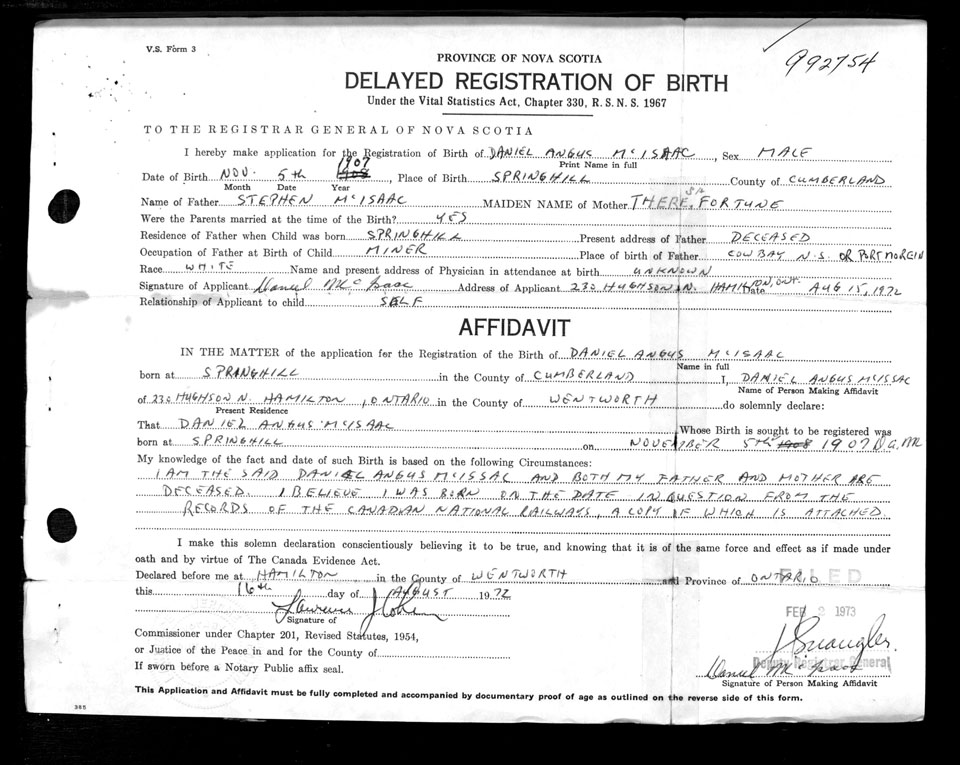 V.S. Form 3
992754
PROVINCE OF NOVA SCOTIA
DELAYED REGISTRATION OF BIRTH
Under the Vital Statistics Act, Chapter 330, R.S.N.S. 1967
TO THE REGISTRAR GENERAL OF NOVA SCOTIA
I hereby make application for the Registration of Birth of DANIEL ANGUS McISAAC, Sex MALE
Print Name in full
1907
Date of Birth NOV. 5th 1908, Place of Birth SPRINGHILL County of CUMBERLAND
Month Date Year
Name of Father STEPHEN McISAAC MAIDEN NAME of Mother THERESA FORTUNE
Were the Parents married at the time of the Birth? YES
Residence of Father when Child was born SPRINGHILL Present address of Father DECEASED
Occupation of Father at Birth of Child MINER Place of birth of Father COW BAY N.S. OR PORT MOREIN
Race WHITE Name and present address of Physician in attendance at birth UNKNOWN
Signature of Applicant Daniel A McIsaac Address of Applicant 230 HUGHSON N. HAMILTON, ONT. Date AUG 15, 1972
Relationship of Applicant to child SELF
AFFIDAVIT
IN THE MATTER of the application for the Registration of the Birth of DANIEL ANGUS McISAAC
Name in full
born at SPRINGHILL in the County of CUMBERLAND I, DANIEL ANGUS McISSAC
Name of Person Making Affidavit
of 230 HUGHSON N. HAMILTON, ONTARIO in the County of WENTWORTH do solemnly declare:
Present Residence
That DANIEL ANGUS McISAAC Whose Birth is sought to be registered was
born at SPRINGHILL on NOVEMBER 5th 1908 1907
My knowledge of the fact and date of such Birth is based on the following Circumstances:
I AM THE SAID DANIEL ANGUS McISSAC AND BOTH MY FATHER AND MOTHER ARE
DECEASED. I BELIEVE I WAS BORN ON THE DATE IN QUESTION FROM THE
RECORDS OF THE CANADIAN NATIONAL RAILWAYS, A COPY OF WHICH IS ATTACHED.
I make this solemn declaration conscientiously believing it to be true, and knowing that it is of the same force and effect as if made under
oath and by virtue of The Canada Evidence Act.
Declared before me at HAMILTON in the County of WENTWORTH and Province of ONTARIO
FILED
this 16th day of AUGUST 1972
FEB 2 1973
Signature of
Commissioner under Chapter 201, Revised Statutes, 1954,
or Justice of the Peace in and for the County of
Deputy Registrar General
If sworn before a Notary Public affix seal.
Daniel A McIsaac
Signature of Person Making Affidavit
This Application and Affidavit must be fully completed and accompanied by documentary proof of age as outlined on the reverse side of this form.
385